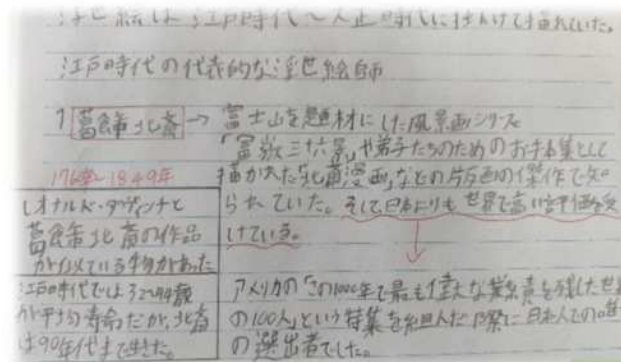 浮世絵は江戸時代〜大正時代にかけて描れていた。
江戸時代の代表的な浮世絵師
1 葛飾北斎 → 富士山を題材にした風景画シリーズ
「富嶽三六景」や弟子たちのためのお手本集として
1760〜1849年
描かれた「北斎漫画」などの版画の傑作で知
られていた。そして日本よりも世界で高い評価を受
けている。
レオナルド・ダヴィンチと
葛飾北斎の作品
が似ている物があった
江戸時代では32〜44歳
が平均寿命だが、北斎
は90年代まで生きた。
アメリカの「この1000年で最も偉大な業績を残した世界
の100人」という特集を組んだ際に日本人での唯一
の選出者でした。